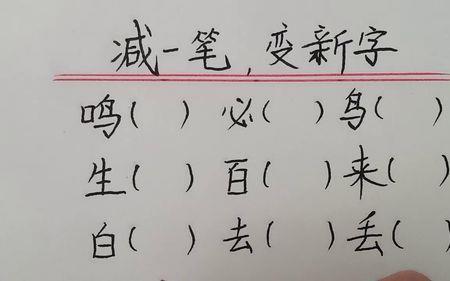 减一笔,变新字
鸣( ) 必( ) 鸟( )
生( ) 百( ) 来( )
白( ) 去( ) 丢( )